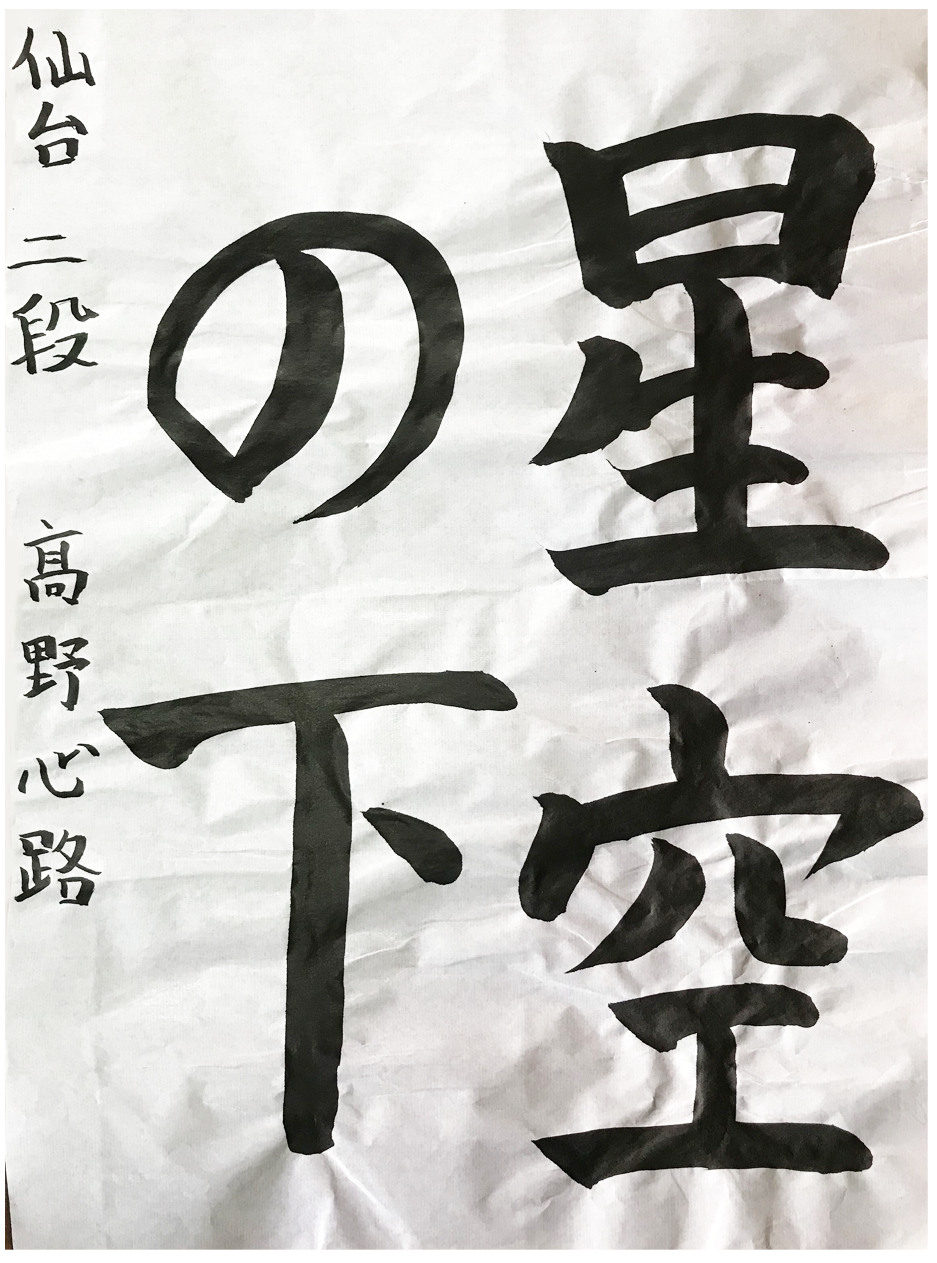 星空
の下
仙台 二段 高野心路